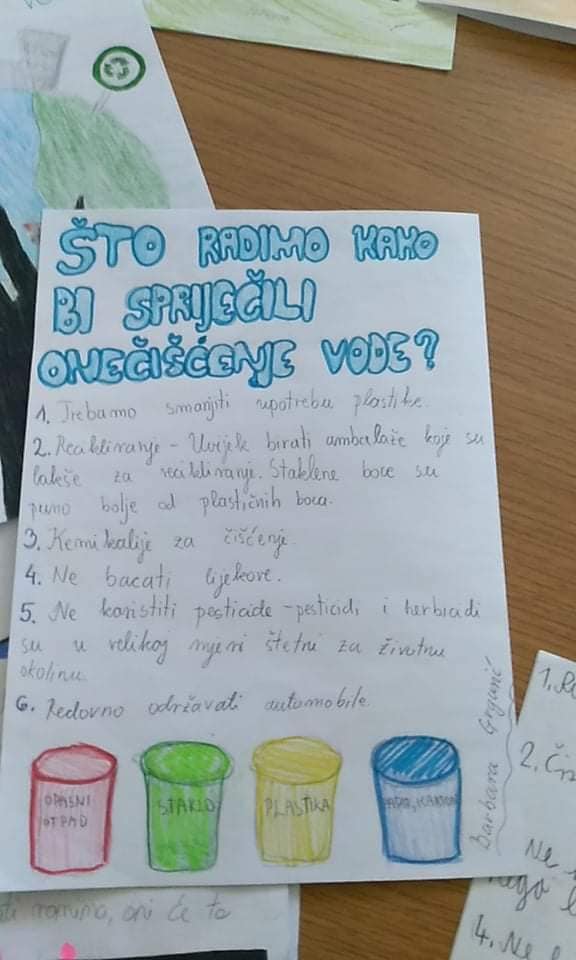 ŠTO RADIMO KAKO
BI SPRIJEČILI
ONEČIŠĆENJE VODE?
1. Trebamo smanjiti upotrebu plastike.
2. Recikliranje - Uvijek birati ambalaže koje su
lakše za recikliranje. Staklene boce su
puno bolje od plastičnih boca.
3. Kemikalije za čišćenje.
4. Ne bacati lijekove.
5. Ne koristiti pesticide - pesticidi i herbicidi
su u velikoj mjeri štetni za životnu
okolinu.
6. Redovno održavati automobile.
OPASNI
OTPAD
STAKLO
PLASTIKA
PAPIR, KARTON
Barbara Grganić
1.
2.
Ne
nego
4. Ne
oni će to